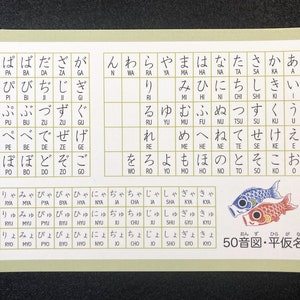 ぱ ば だ ざ が ん わ ら や ま は な た さ か あ
PA BA DA ZA GA N WA RA YA MA HA NA TA SA KA A
ぴ び ぢ じ ぎ り み ひ に ち し き い
PI BI JI JI GI RI MI HI NI CHI SHI KI I
ぷ ぶ づ ず ぐ る ゆ む ふ ぬ つ す く う
PU BU ZU ZU GU RU YU MU FU NU TSU SU KU U
ぺ べ で ぜ げ れ め へ ね て せ け え
PE BE DE ZE GE RE ME HE NE TE SE KE E
ぽ ぼ ど ぞ ご を ろ よ も ほ の と そ こ お
PO BO DO ZO GO WO RO YO MO HO NO TO SO KO O
りゃ みゃ ぴゃ びゃ ひゃ にゃ ぢゃ ちゃ じゃ しゃ ぎゃ きゃ
RYA MYA PYA BYA HYA NYA JA CHA JA SHA GYA KYA
りゅ みゅ ぴゅ びゅ ひゅ にゅ ぢゅ ちゅ じゅ しゅ ぎゅ きゅ
RYU MYU PYU BYU HYU NYU JU CHU JU SHU GYU KYU
りょ みょ ぴょ びょ ひょ にょ ぢょ ちょ じょ しょ ぎょ きょ
RYO MYO PYO BYO HYO NYO JO CHO JO SHO GYO KYO
おん ず ひら が な
50音図・平仮名